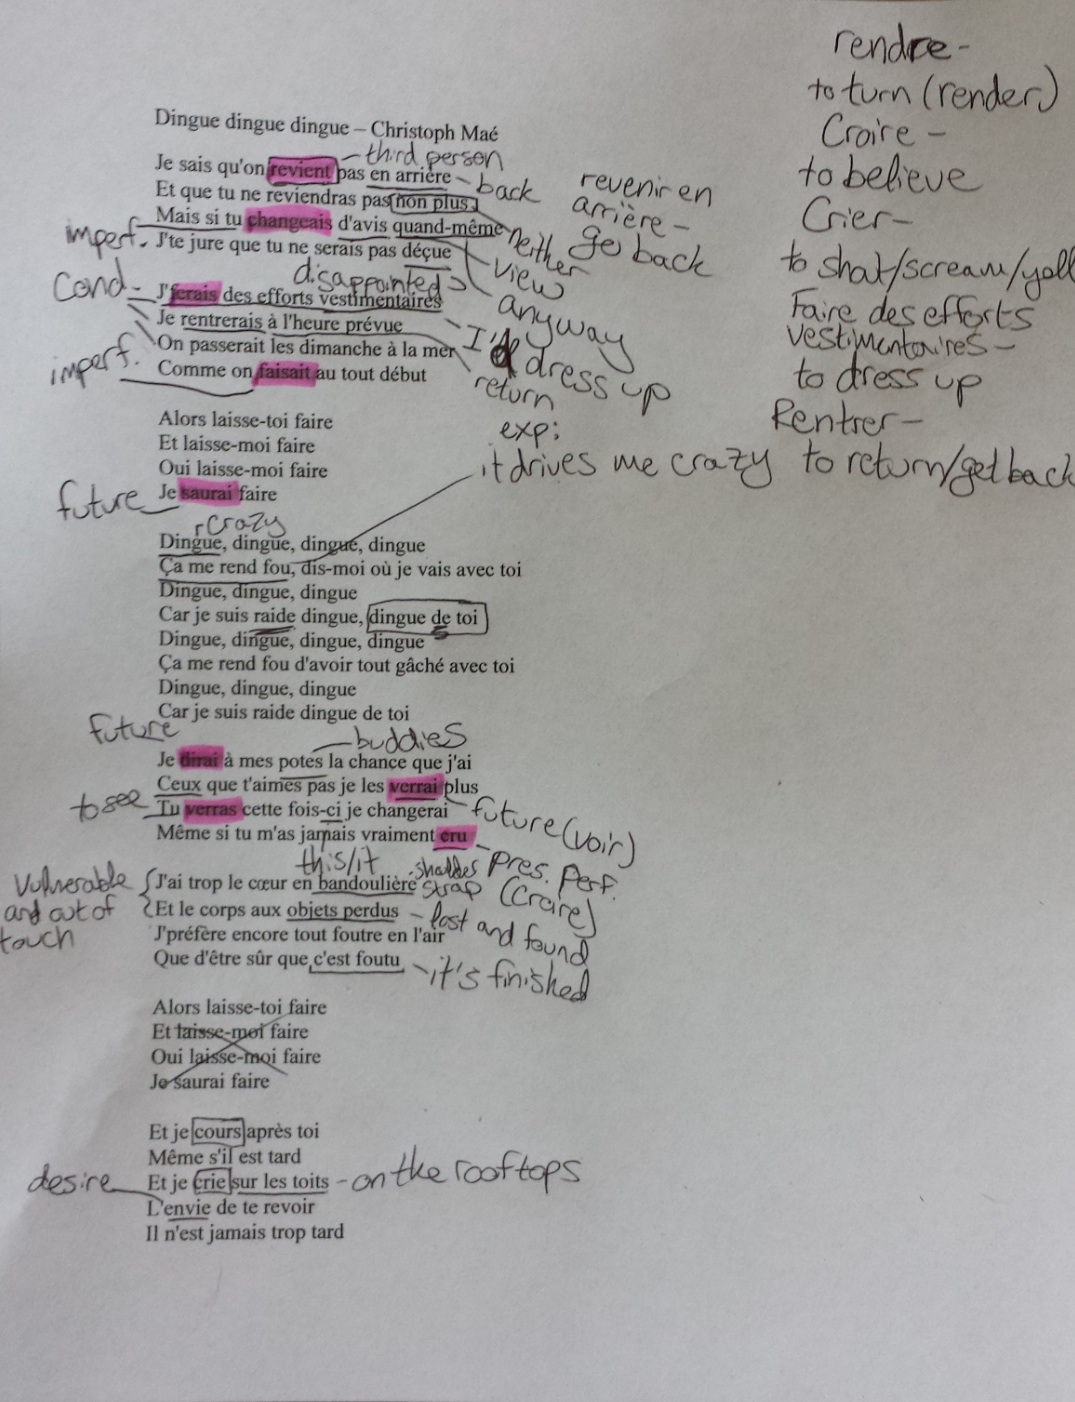 rendre -
to turn (render)
Croire -
to believe
Crier -
to shat/scream/yell
Faire des efforts
vestimentaires -
to dress up
Rentrer -
to return/get back
Dingue dingue dingue – Christoph Maé
third person
Je sais qu'on revient pas en arrière - back
Et que tu ne reviendras pas non plus
neither
revenir en
arrière -
go back
Mais si tu changeais d'avis quand-même
view
anyway
imperf. J'te jure que tu ne serais pas déçue
disappointed
Cond - J'ferais des efforts vestimentaires
I'd dress up
Je rentrerais à l'heure prévue
return
On passerait les dimanche à la mer
imperf. Comme on faisait au tout début
Alors laisse-toi faire
Et laisse-moi faire
Oui laisse-moi faire
future Je saurai faire
exp:
it drives me crazy
crazy
Dingue, dingue, dingue, dingue
Ça me rend fou, dis-moi où je vais avec toi
Dingue, dingue, dingue
Car je suis raide dingue, dingue de toi
Dingue, dingue, dingue, dingue
Ça me rend fou d'avoir tout gâché avec toi
Dingue, dingue, dingue
Car je suis raide dingue de toi
future
buddies
Je dirai à mes potes la chance que j'ai
Ceux que t'aimes pas je les verrai plus
to see Tu verras cette fois-ci je changerai
future (voir)
Même si tu m'as jamais vraiment cru
pres. perf.
(Croire)
this/it
Vulnerable
and out of
touch
J'ai trop le cœur en bandoulière
strap
Et le corps aux objets perdus - lost and found
J'préfère encore tout foutre en l'air
Que d'être sûr que c'est foutu - it's finished
Alors laisse-toi faire
Et laisse-moi faire
Oui laisse-moi faire
Je saurai faire
Et je cours après toi
Même s'il est tard
Et je crie sur les toits - on the rooftops
desire L'envie de te revoir
Il n'est jamais trop tard